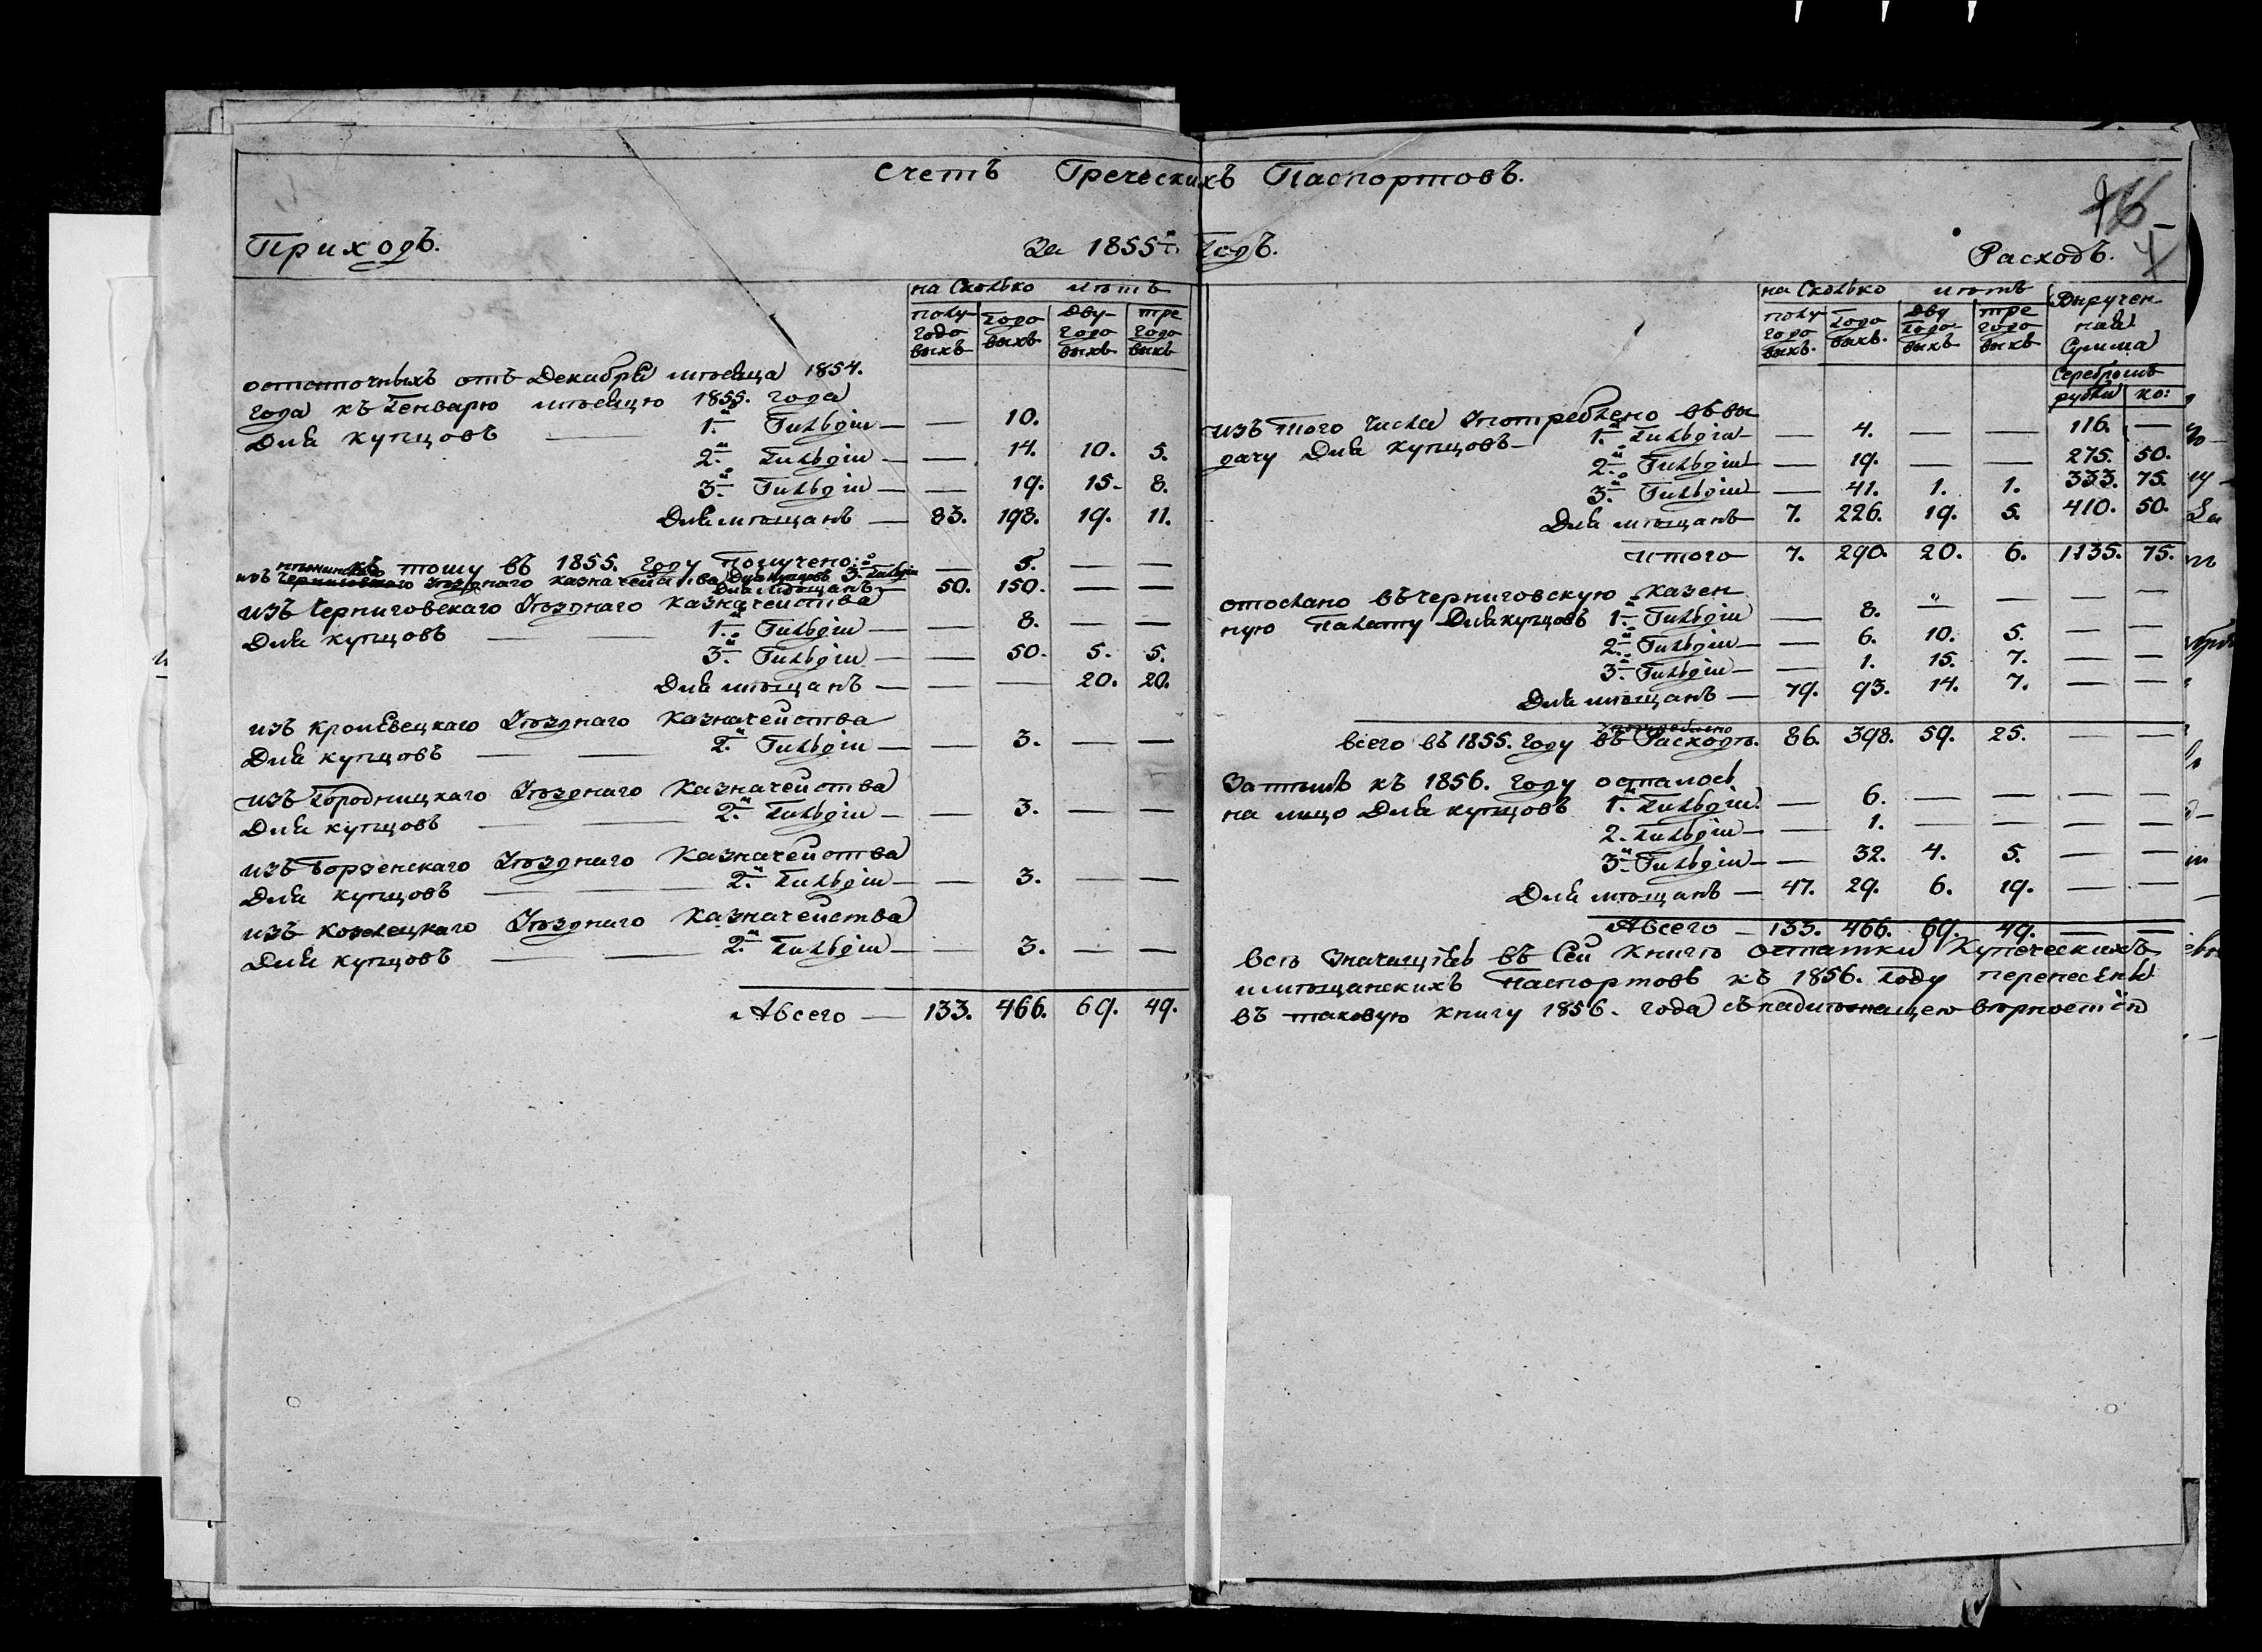 Счетъ Греческихъ Паспортовъ.
Приходъ. За 1855й Годъ. Расходъ.
на Сколько лѣтъ
полу годо выхъ Годо выхъ Дву- годо выхъ тре годо выхъ
остаточныхъ отъ Декабря мѣсяца 1854.
года къ Генварю мѣсяцю 1855. года
Для купцовъ — 1.й Гильдіи — — 10.
2.й Гильдіи — — 14. 10. 5.
3.й Гильдіи — — 19. 15. 8.
Для мѣщанъ — 83. 198. 19. 11.
къ тому въ 1855. году получено:
изъ нѣжинскаго Уѣзднаго казначейства Для купцовъ 3.й Гильдіи — 5. — —
Для мѣщанъ — 50. 150. — —
изъ Черниговскаго Уѣзднаго Казначейства
Для купцовъ — — 1.й Гильдіи — — 8. — —
3.й Гильдіи — — 50. 5. 5.
Для мѣщанъ — — — 20. 20.
изъ Кролевецкаго Уѣзднаго Казначейства
Для купцовъ — — 2.й Гильдіи — — 3. — —
изъ Городницкаго Уѣзднаго Казначейства
Для купцовъ — — 2.й Гильдіи — — 3. — —
изъ Борзенскаго Уѣзднаго Казначейства
Для купцовъ — — 2.й Гильдіи — — 3. — —
изъ Козелецкаго Уѣзднаго Казначейства
Для купцовъ — — 2.й Гильдіи — — 3. — —
А Всего — 133. 466. 69. 49.
4
на Сколько лѣтъ Выручен ная Сумма
полу годо выхъ. Годо выхъ. Дву Годо выхъ тре годо выхъ Серебромъ
рубли ко:
изъ того числа Употреблено въ вы
дачу Для купцовъ — 1.й Гильдіи — — 4. — — 116. —
2.й Гильдіи — — 19. — — 275. 50.
3.й Гильдіи — — 41. 1. 1. 333. 75.
Для мѣщанъ — 7. 226. 19. 5. 410. 50.
итого — 7. 290. 20. 6. 1135. 75.
отослано въ Черниговскую Казен
ную Палату Для купцовъ 1.й Гильдіи — — 8. " — — —
2.й Гильдіи — — 6. 10. 5. — —
3.й Гильдіи — — 1. 15. 7. — —
Для мѣщанъ — 79. 93. 14. 7. — —
употреблено
всего въ 1855. году въ Расходъ. 86. 398. 59. 25. — —
Затѣмъ къ 1856. году осталось
на лицо Для купцовъ 1.й Гильдіи. — 6. — — — —
2. Гильдіи — — 1. — — — —
3.й Гильдіи — — 32. 4. 5. — —
Для мѣщанъ — 47. 29. 6. 19. — —
А Всего — 133. 466. 69. 49. — —
всѣ Значащіеся въ Сей Книгѣ остатки Купеческихъ
и мѣщанскихъ паспортовъ къ 1856. Году перенесены
въ таковую книгу 1856. года съ надлѣжащею вѣрностію